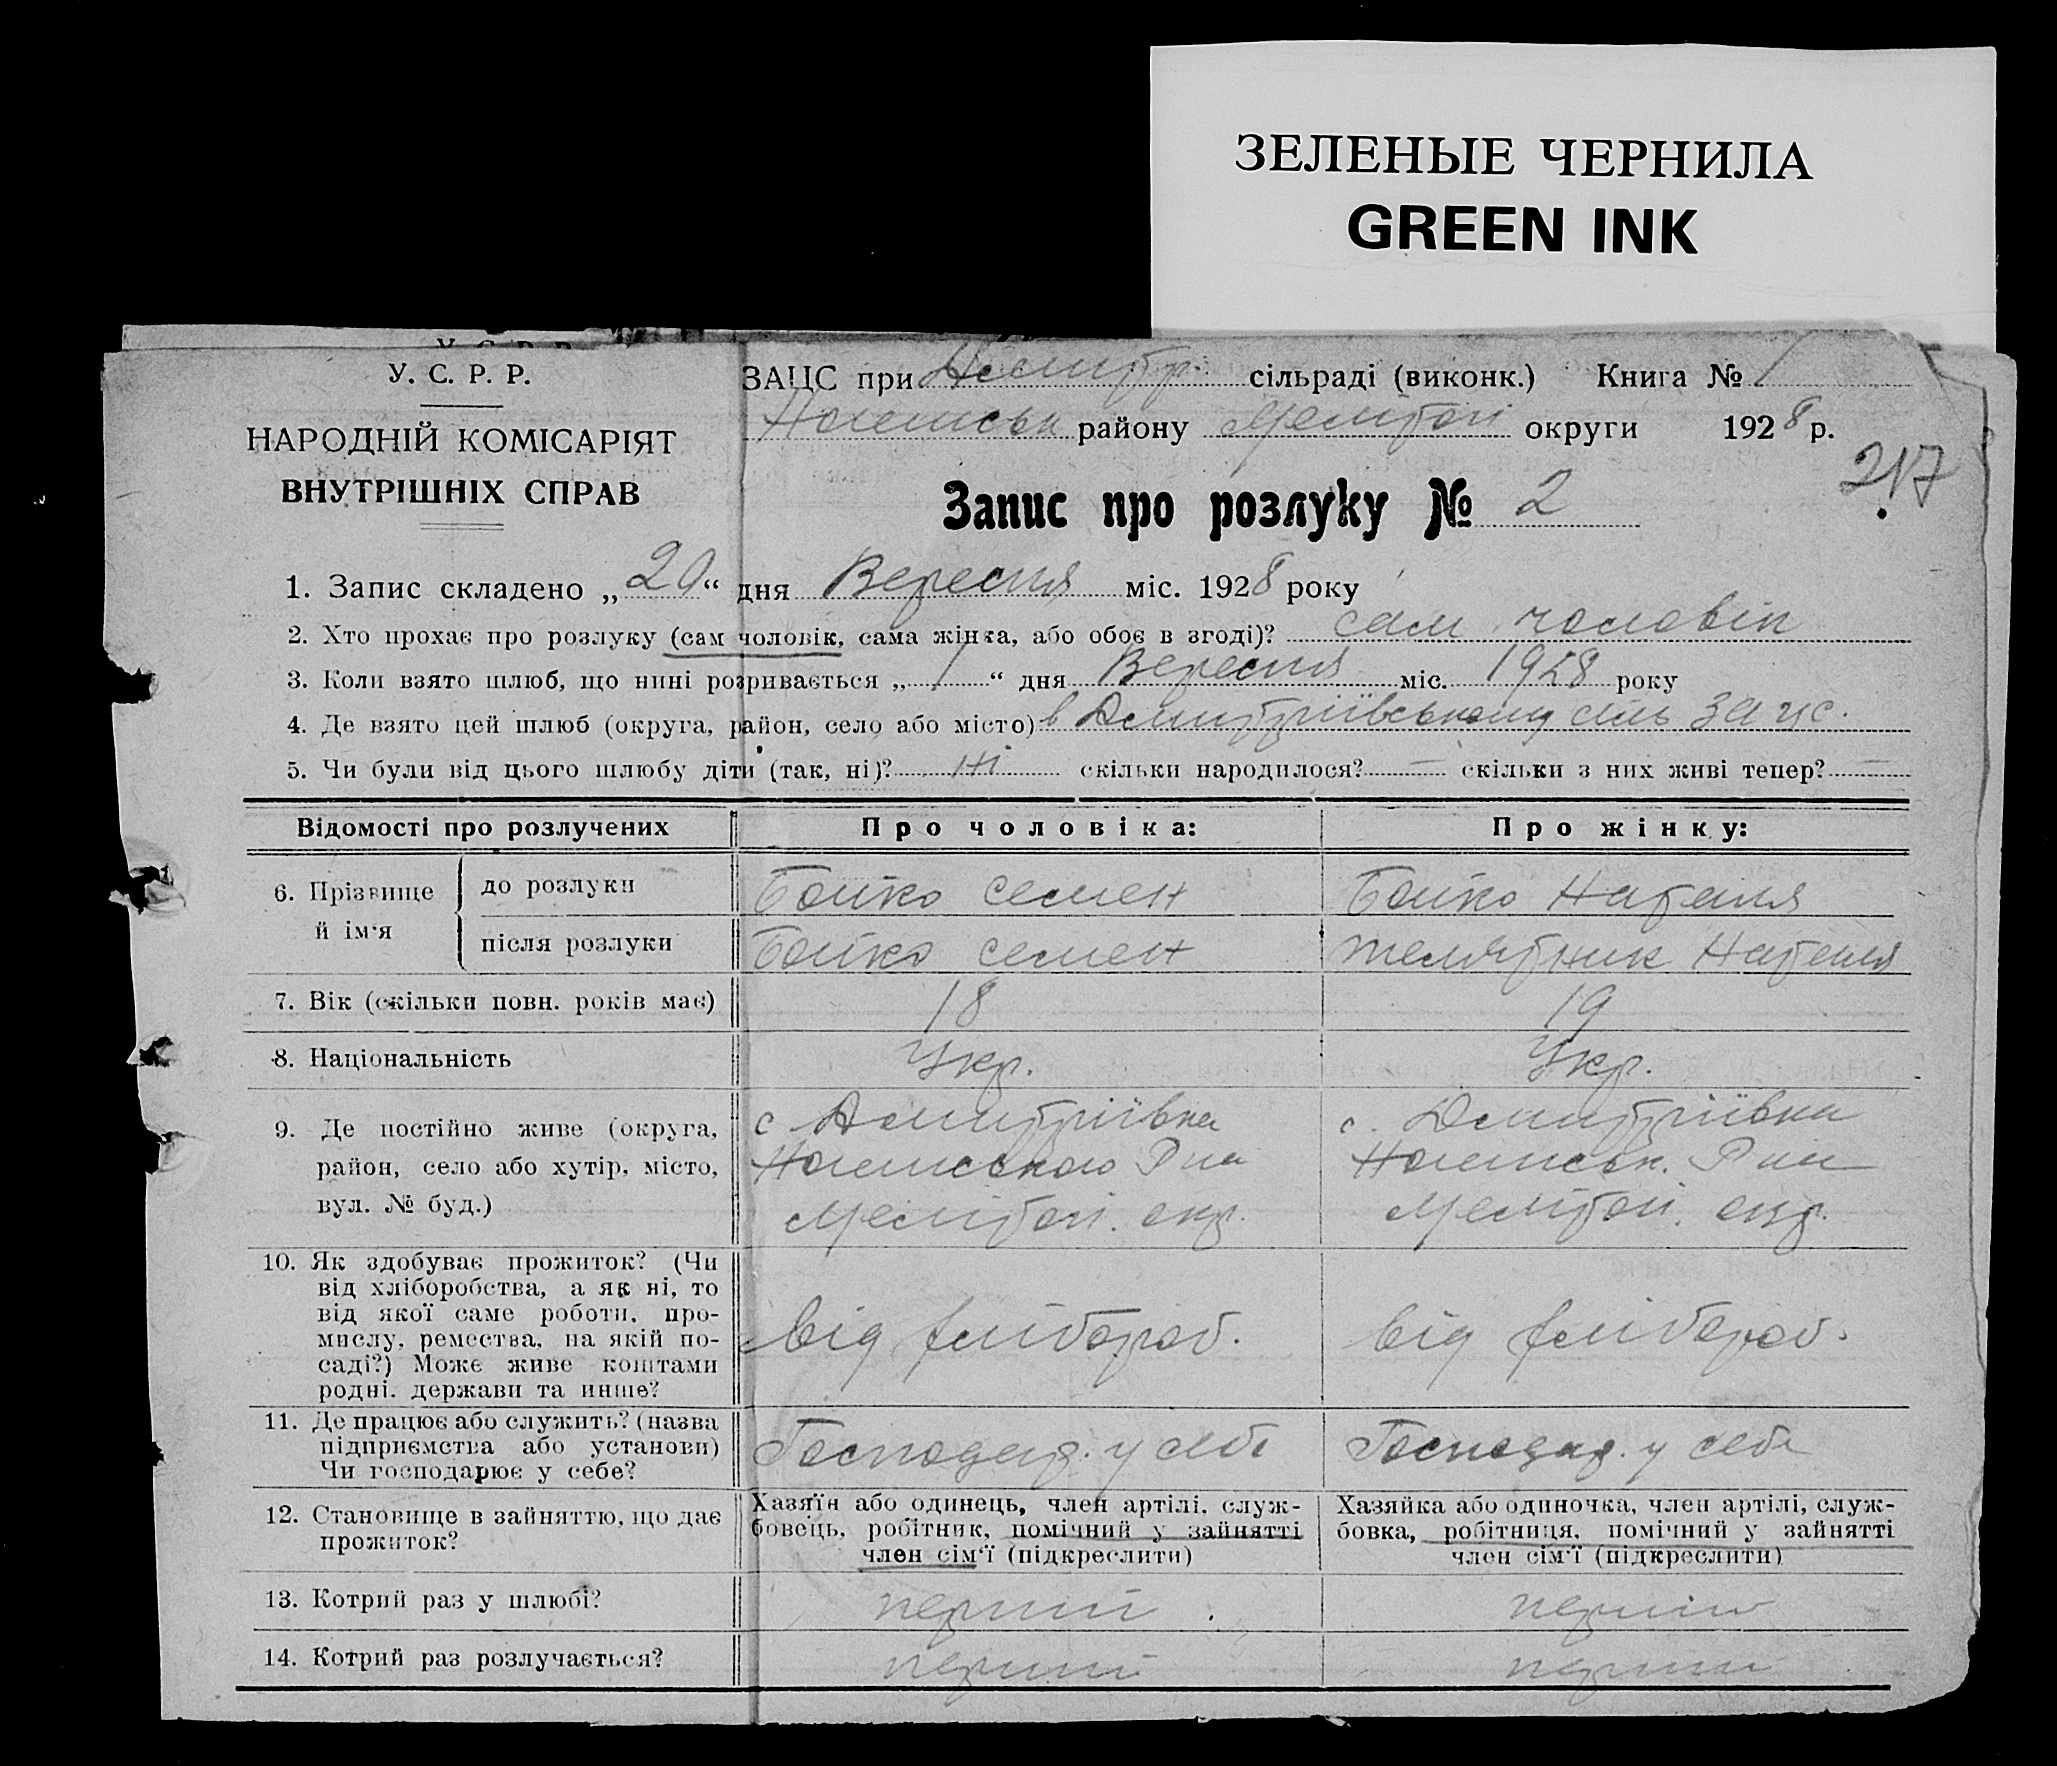 ЗЕЛЕНЫЕ ЧЕРНИЛА
GREEN INK
У. С. Р. Р.
НАРОДНІЙ КОМІСАРІЯТ
ВНУТРІШНІХ СПРАВ
ЗАЦС при Дмитр. сільраді (виконк.) Книга № 1
району Мелітоп округи 1928 р.
217
Запис про розлуку № 2
1. Запис складено „20“ дня Вересня міс. 1928 року
2. Хто прохає про розлуку (сам чоловік, сама жінка, або обоє в згоді)? сам чоловік
3. Коли взято шлюб, що нині розривається „1“ дня Вересня міс. 1928 року
4. Де взято цей шлюб (округа, район, село або місто) в Дмитріївському сіль загс.
5. Чи були від цього шлюбу діти (так, ні)? ні скільки народилося? — скільки з них живі тепер? —
Відомості про розлучених
Про чоловіка:
Про жінку:
6. Прізвище й ім'я
до розлуки
Бойко Семен
Бойко Наталя
після розлуки
Бойко Семен
Телятник Наталя
7. Вік (скільки повн. років має)
18
19
8. Національність
Укр.
Укр.
9. Де постійно живе (округа,
район, село або хутір, місто,
вул. № буд.)
с Дмитріївка
Р на
Мелітоп. окр.
с. Дмитріївка
Р на
Мелітоп. окр.
10. Як здобуває прожиток? (Чи
від хліборобства, а як ні, то
від якої саме роботи, про-
мислу, ремества, на якій по-
саді?) Може живе коштами
родні, держави та инше?
від хлібороб.
від хлібороб.
11. Де працює або служить? (назва
підприємства або установи)
Чи господарює у себе?
Господар. у себе
Господар. у себе
12. Становище в зайняттю, що дає
прожиток?
Хазяїн або одинець, член артілі, служ-
бовець, робітник, помічний у зайнятті
член сім'ї (підкреслити)
Хазяйка або одиночка, член артілі, служ-
бовка, робітниця, помічний у зайнятті
член сім'ї (підкреслити)
13. Котрий раз у шлюбі?
перший
14. Котрий раз розлучається?
перший
перший